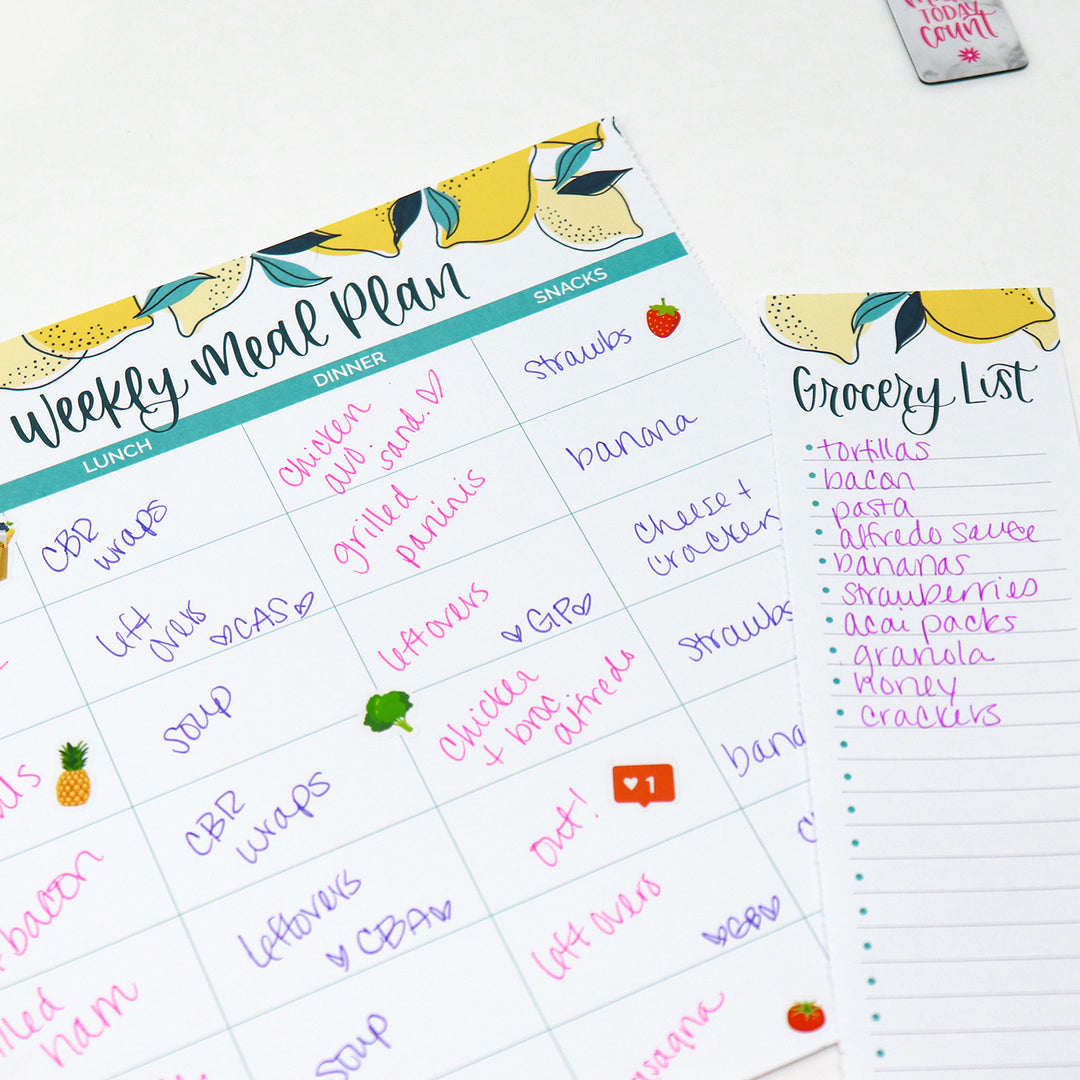 TODAY
count
Weekly Meal Plan
LUNCH
DINNER
SNACKS
CBR
wraps
chicken
avo
sand. ♡
strawbs
left
overs
♡CAS♡
grilled
paninis
banana
soup
leftovers
♡GP♡
cheese +
crackers
CBR
wraps
chicken
+ broc
alfredo
strawbs
bacon
leftovers
♡CBA♡
out!
♥1
ham
soup
left overs
♡GB♡
Grocery List
tortillas
bacon
pasta
alfredo sauce
bananas
strawberries
acai packs
granola
honey
crackers